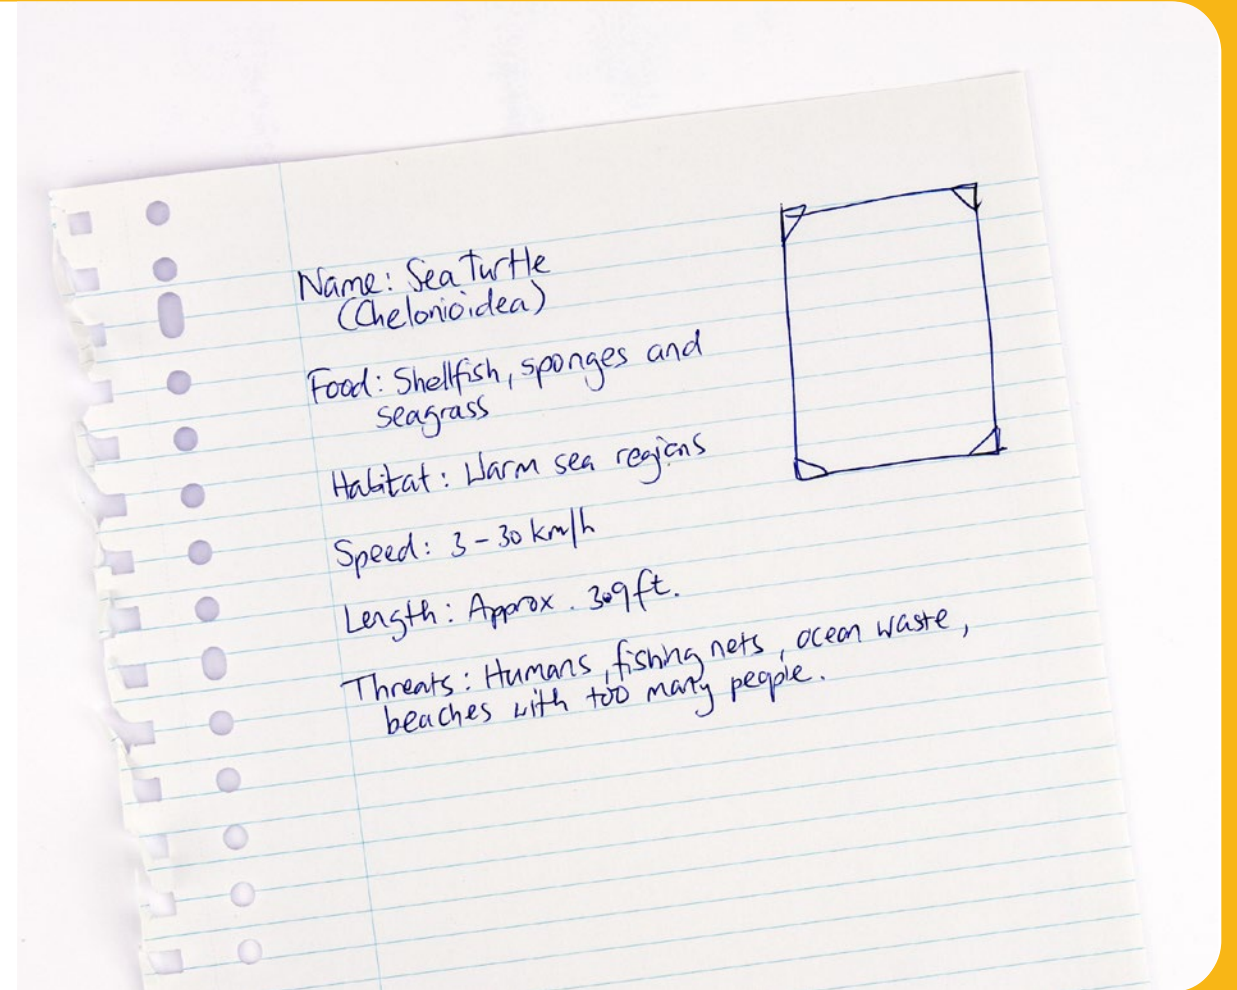 Name: Sea Turtle
(Chelonioidea)
Food: Shellfish, sponges and
seagrass
Habitat: Warm sea regions
Speed: 3-30 km/h
Length: Approx. 3.9ft.
Threats: Humans, fishing nets, ocean waste,
beaches with too many people.